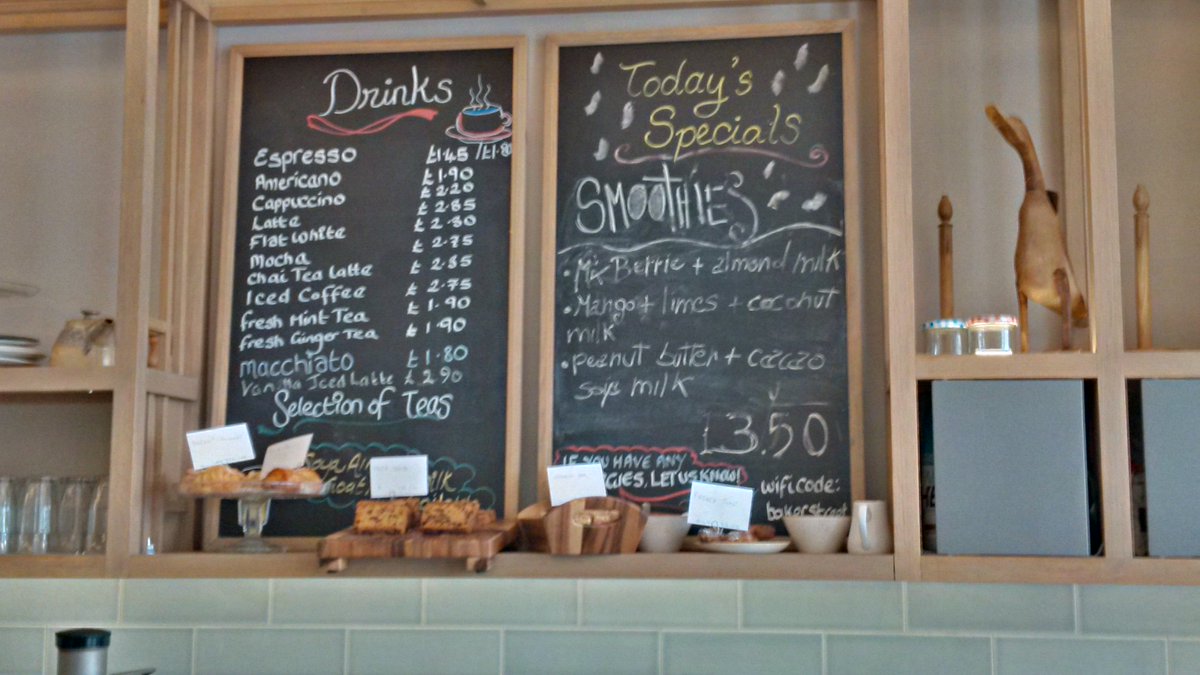 Drinks
Espresso £1.45/£1.80
Americano £1.90
Cappuccino £2.20
Latte £2.85
Flat White £2.30
Mocha £2.75
Chai Tea Latte £2.85
Iced Coffee £2.75
fresh Mint Tea £1.90
fresh Ginger Tea £1.90
macchiato £1.80
Vanilla Iced Latte £2.90
Selection of Teas
Soya
Today's
Specials
SMOOTHIES
• Mix Berrie + almond milk
• Mango + limes + coconut
milk
• peanut butter + cacao
soya milk
£3.50
IF YOU HAVE ANY
LET US KNOW!
wifi code: